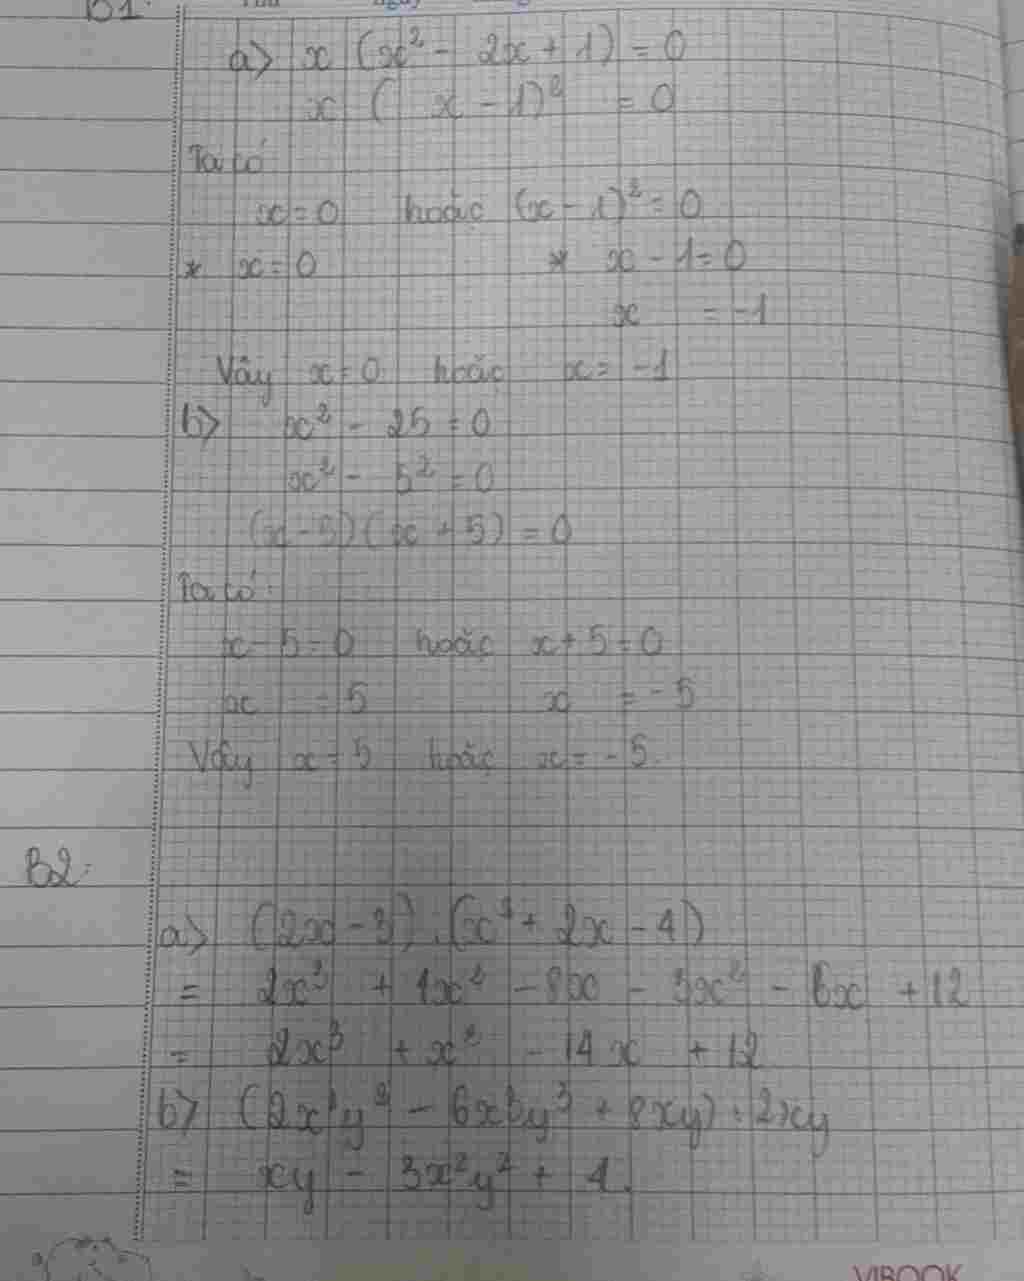 B1:
a> x (x² - 2x + 1) = 0
x ( x - 1)² = 0
Ta có
x = 0 hoặc (x - 1)² = 0
* x = 0 * x - 1 = 0
x = -1
Vậy x = 0 hoặc x = -1
b> x² - 25 = 0
x² - 5² = 0
(x - 5) (x + 5) = 0
Ta có:
x - 5 = 0 hoặc x + 5 = 0
x = 5 x = -5
Vậy x = 5 hoặc x = -5.
B2:
a> (2x - 3) . (x² + 2x - 4)
= 2x³ + 4x² - 8x - 3x² - 6x + 12
= 2x³ + x² - 14x + 12
b> (2x²y² - 6x³y³ + 8xy) : 2xy
= xy - 3x²y² + 4.
VIBOOK